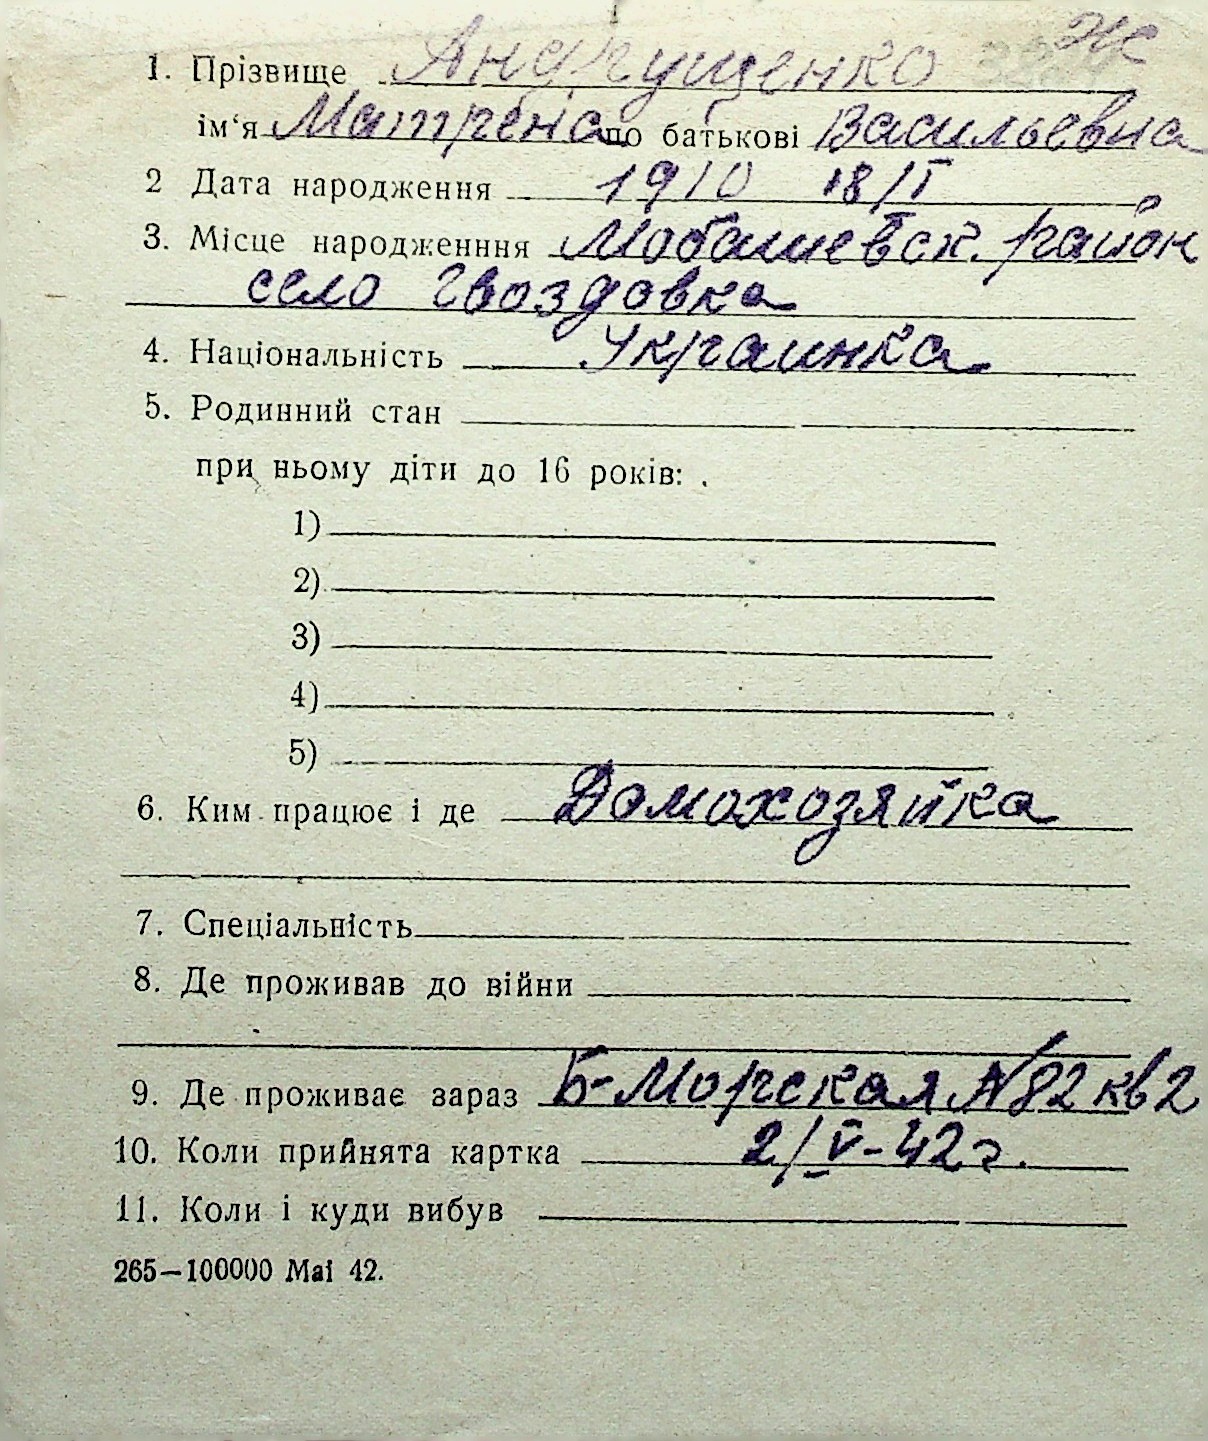 Ж
1. Прізвище Андрущенко
ім‘я Матрена по батькові Васильевна
2 Дата народження 1910 18/I
3. Місце народженння Любашевск. район
село Гвоздовка
4. Національність Украинка
5. Родинний стан
при ньому діти до 16 років:
1)
2)
3)
4)
5)
6. Ким працює і де Домохозяйка
7. Спеціальність
8. Де проживав до війни
9. Де проживає зараз Б-Морская №82 кв 2
10. Коли прийнята картка 2/V-42 г.
11. Коли і куди вибув
265—100000 Mai 42.